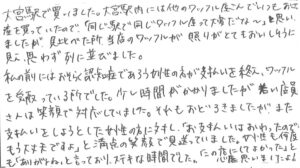 大宮駅で買いました。大宮駅内には他のワッフル店
産を買っていたので「同じ駅で同じワッフル屋って大変だな〜」と思い
ましたが 見比べた所 当店のワッフルが 照りがとてもおいしそうに
見え、思わず列に並びました。
私の前にはおそらく認知症であろう女性の方が支払いを終え、ワッフル
を 所でした。少し時間がかかりましたが若い店員
さんは笑顔で対応していました。それもおどろきましたがまた
支払いをしようとした女性の方に対し、「お支払いはおわったので
もう大丈夫ですよ」と満点の笑顔で見送っていました。女性も何度
も「ありがとね」と言っており、ステキな時間でした。「この店にしてよかった」と
思いまし